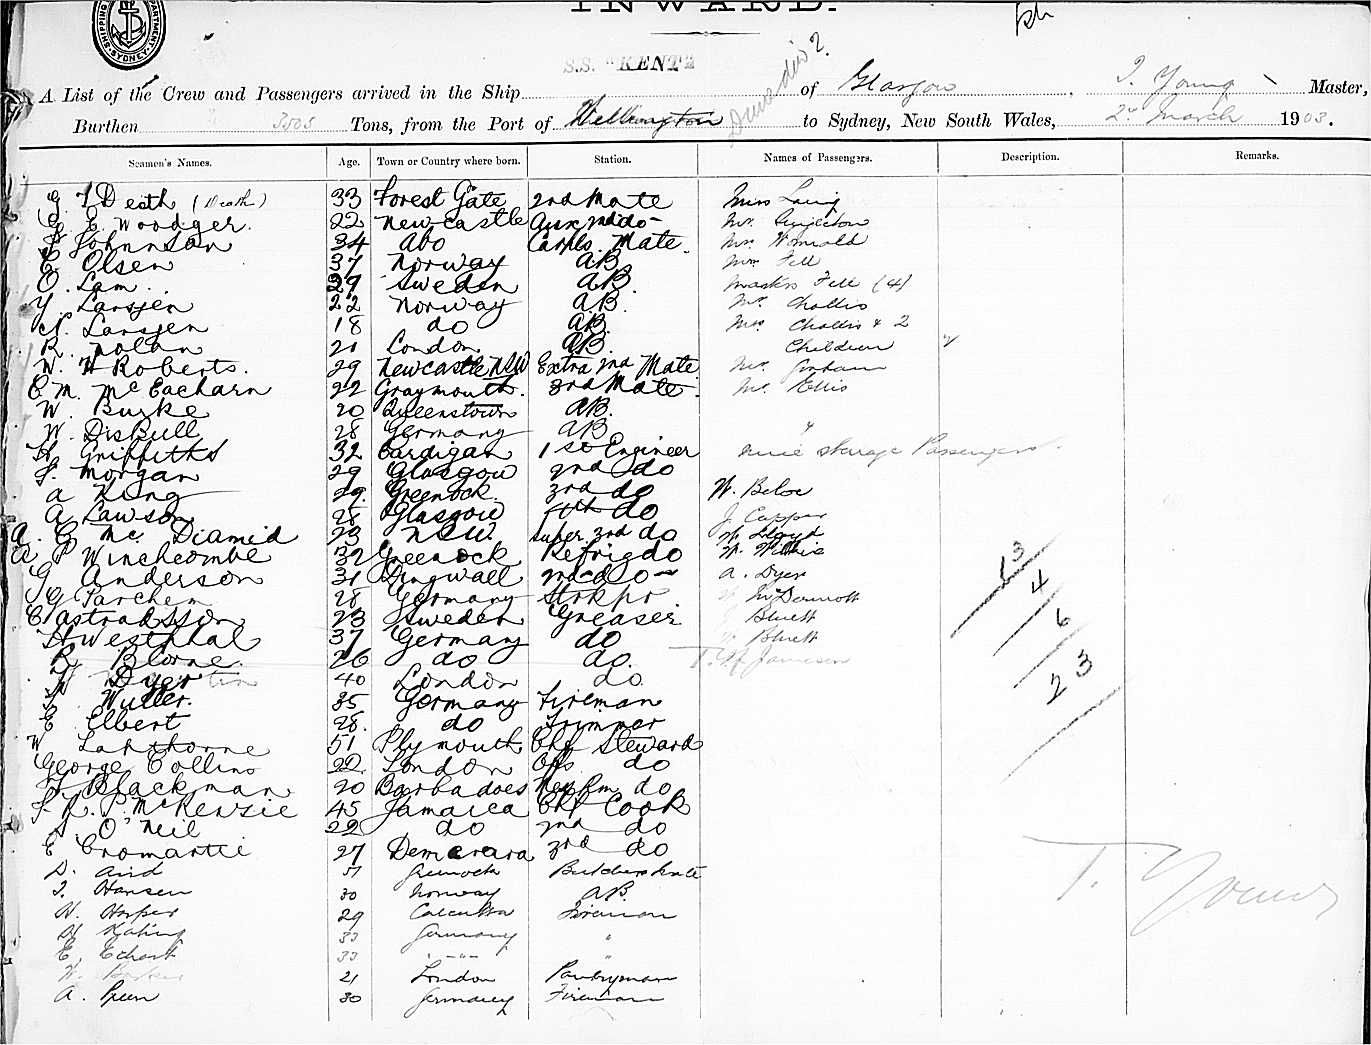 INWARD.
SHIPPING DEPARTMENT. SYDNEY
S.S. "KENT"
A List of the Crew and Passengers arrived in the Ship of Glasgow, T. Young Master,
Burthen 3505 Tons, from the Port of Wellington to Sydney, New South Wales, 2nd March 1903.
Seamen's Names. Age. Town or Country where born. Station. Names of Passengers. Description. Remarks.
G. T Death (Death) 33 Forest Gate 2nd Mate Miss Laing
G. E. Woodger. 22 Newcastle Aux 2nd do Mr.
Johnnson 34 Abo Carps. Mate. Mr.
C. Olsen 37 Norway AB Mrs Fell
O. Lam 29 Sweden AB. Masters Fell (4)
Y. Larsjen 22 Norway A.B. Mr. Challis
N. Larsjen 18 do AB Mrs Challis & 2
R. Nolan 21 London AB Children
W. H Roberts. 29 Newcastle NSW Extra 2nd Mate Mr. Graham
C. M. McEacharn 22 Graymouth. 3rd Mate. Mr. Ellis
W. Burke 20 Queenstown AB.
W. Diskull 28 Germany AB
H. Griffiths 32 Cardigan 1st Engineer nine steerage Passengers.
F. Morgan 29 Glasgow 2nd do
A King 29. Greenock. 3rd do W. Beloe
A. Lawson 28 Glasgow 4th do J. Capper
A. G. Mc Diamid 23 N.S.W. Super. 3rd do W. Lloyd
A. P Winchcombe 32 Greenock Refrig do W. Willie
G. Anderson 31 Dingwall 2nd do A. Dyer 13
G Parchem 28 Germany Strkpr McDermott 4
C Astradsson 23 Sweden Greaser Bluett 6
H Westphal 37 Germany do Bluett
R. Blorne. 26 do do. T. W Jamesen 23
W Dyer 40 London do
Wuller. 35 Germany Fireman
E Elbert 28. do Trimmer
W Lapthorne 51 Plymouth Chf Steward
George Collins 22 London do
Blackman 20 Barbadoes do
F. R. P. McKenzie 45 Jamaica Chf Cook
S. O'Neil 22 do 2nd do
E Cromartie 27 Demerara 3rd do T. Young
D. Aird 51 Greenock
T. Hansen 30 Norway AB.
W. Harper 29 Calcutta Fireman
33 Germany "
E. Eckart 33 " -"- "
W. Barker 21 London Pantryman
A. 30 Germany Fireman